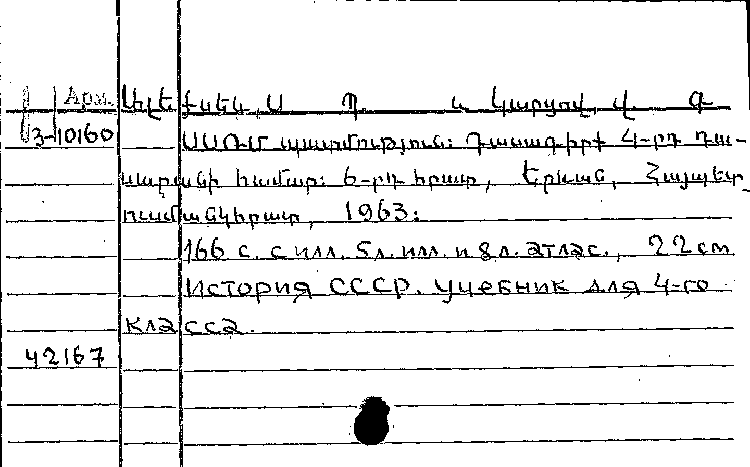 Арм. Ալեքսեև, Ս Պ. և Կարցով, Վ. Գ
3-10160 ՍՍՌՄ պատմություն: Դասագիրք 4-րդ դա-
սարանի համար: 6-րդ հրատ, Երևան, Հայպետ
ուսմանկհրատ, 1963:
166 с. с илл. 5л. илл. и 8л. атлас., 22 см
История СССР. Учебник для 4-го
класса.
42167